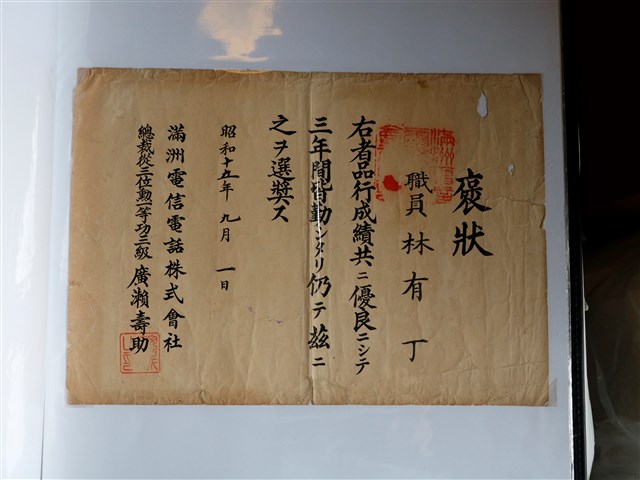 褒狀
職員 林有丁
右者品行成績共ニ優良ニシテ
三年間皆勤シタリ仍テ茲ニ
之ヲ選奬ス
昭和十五年 九月 一日
滿洲電信電話株式會社
總裁從三位勳一等功三級 廣瀨壽助